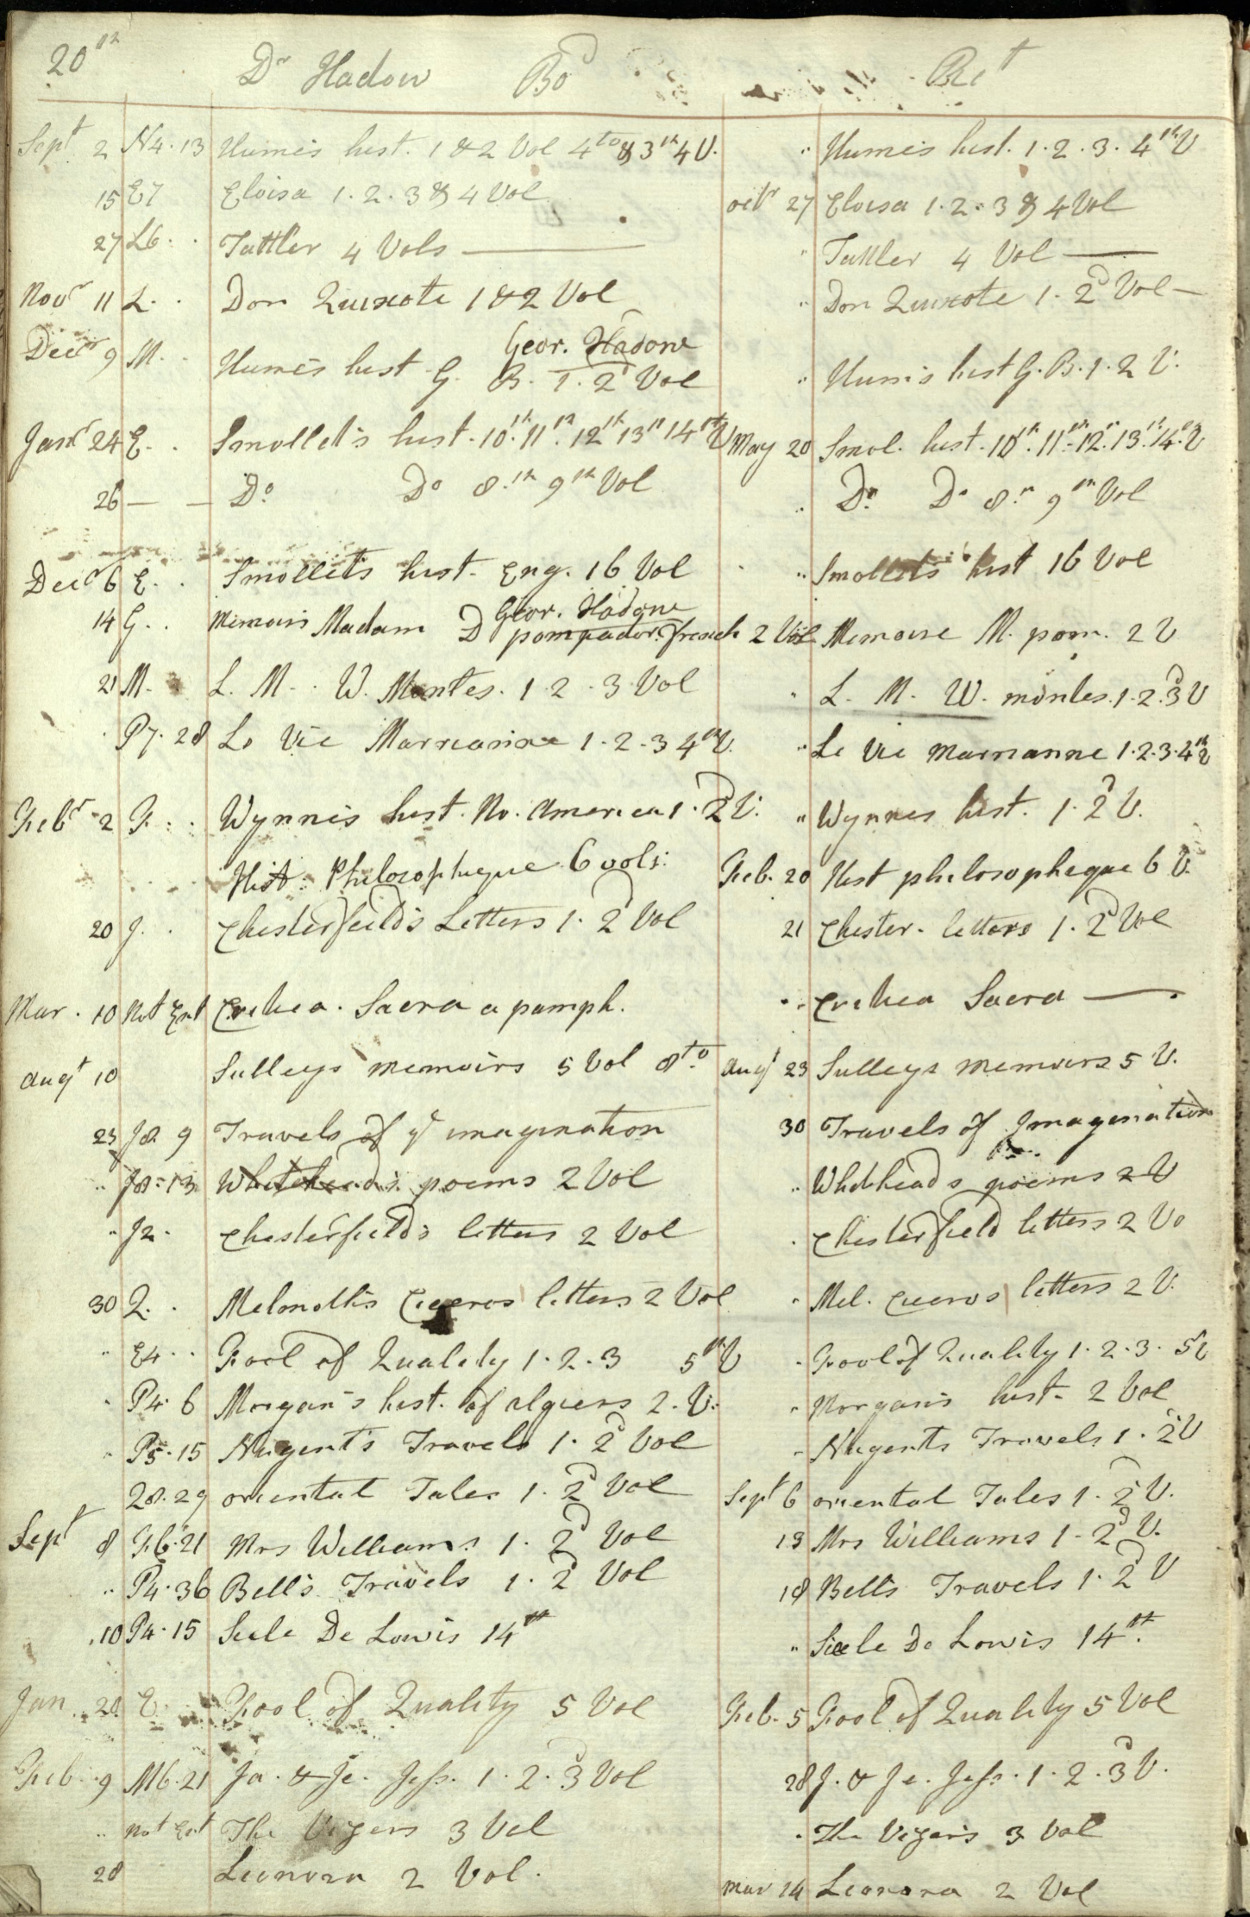 20th Dr Hadow Bo Ret
Sept 2 N4.13 Humes hist. 1 & 2 Vol 4to & 3rd 4 V. " Humes hist. 1.2.3.4th V
15 E7 Eloisa 1.2.3 & 4 Vol octr 27 Eloisa 1.2.3 & 4 Vol
27 L6. . Tattler 4 Vols — " Tattler 4 Vol —
Novr 11 L. . Don Quixote 1 & 2 Vol " Don Quixote 1.2d Vol —
Geor. Hadow
Decr 9 M. . Humes hist G. B. 1.2d Vol " Humes hist G. B. 1.2 V.
Janr 24 E. . Smollets hist. 10th 11th 12th 13th 14th V May 20 Smol. hist. 10th 11th 12th 13th 14th V
26 — — Do Do 8th 9th Vol " Do Do 8th 9th Vol
Decr 6 E. . Smollets hist. Eng. 16 Vol " Smollets hist 16 Vol
Geor. Hadow
14 G. . Memoirs Madam D pompador french 2 Vol Memoire M. pom. 2 V
21 M. L. M. W. Montes. 1.2.3 Vol " L. M. W. montes. 1.2.3d V
P7.28 Le Vie Marrianne 1.2.3 4th V. " Le Vie Marrianne 1.2.3.4th V
Febr 2 F. . Wynnes hist. No. America 1.2d V. " Wynnes hist. 1.2d V.
Hist. Philosophique 6 vols. Feb. 20 Hist philosopheque 6 V.
20 J. . Chesterfeild's Letters 1.2d Vol 21 Chester. letters 1.2d Vol
Mar. 10 Not Ent Erehea. Sacra a pamph. " Erehea Sacra —
Augt 10 Sulleys memoirs 5 Vol 8to Augt 23 Sulleys memoirs 5 V.
23 J8 9 Travels of ye imagination 30 Travels of Imagination
" J8.13 Whitehead's poems 2 Vol " Whitheads poems 2 V
" J2. Chesterfield's letters 2 Vol . Chesterfield letters 2 Vo
30 Q. . Melmoths Ciceros letters 2 Vol " Mel. Ciceros letters 2 V.
" E4. . Fool of Quality 1.2.3 5th V . Fool of Quality 1.2.3.5 V
" P4.6 Morgan's hist. of algiers 2. V. " Morgans hist. 2 Vol
" P5.15 Nugent's Travels 1.2d Vol " Nugents Travels 1.2d V
28.29 oriental Tales 1.2d Vol Sept 6 oriental Tales 1.2d V.
Sept 8 F6.21 Mrs Williams 1.2d Vol 13 Mrs Williams 1.2d V.
" P4.36 Bell's Travels 1.2d Vol 18 Bells Travels 1.2d V
10 P4.15 Seele De Lowis 14th " Sicle De Lowis 14th.
Jan. 20 E Fool of Quality 5 Vol Feb. 5 Fool of Quality 5 Vol
Feb 9 M6.21 Ja. & Je. Jess. 1.2.3d Vol 28 J. & Je. Jess. 1.2.3d V.
" not Ent The Vizers 3 Vol . The Vizers 3 Vol
28 Leonora 2 Vol. Mar 14 Leonora 2 Vol